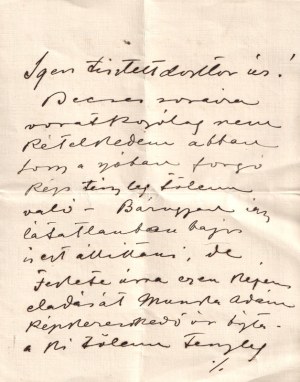 Igen tisztelt doktor úr!
Becses soraira
vonatkozólag nem
kételkedem abban
hogy a szóban forgó
kép tényleg tőlem
való – Bárugyan így
látatlanban bajos
ezt állítani, de
évekkel ezen képem
eladását Munka Ádám
képkereskedő úr
a ki tőlem tényleg
./.